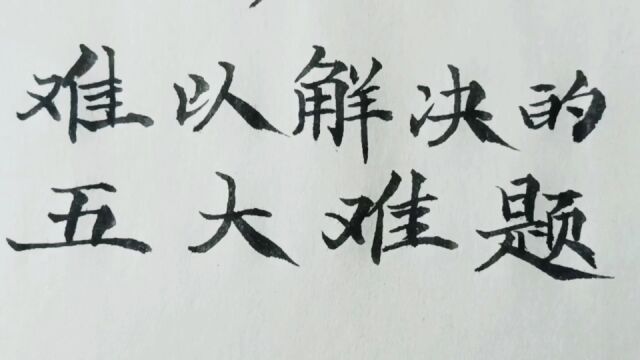 难以解决的
五大难题